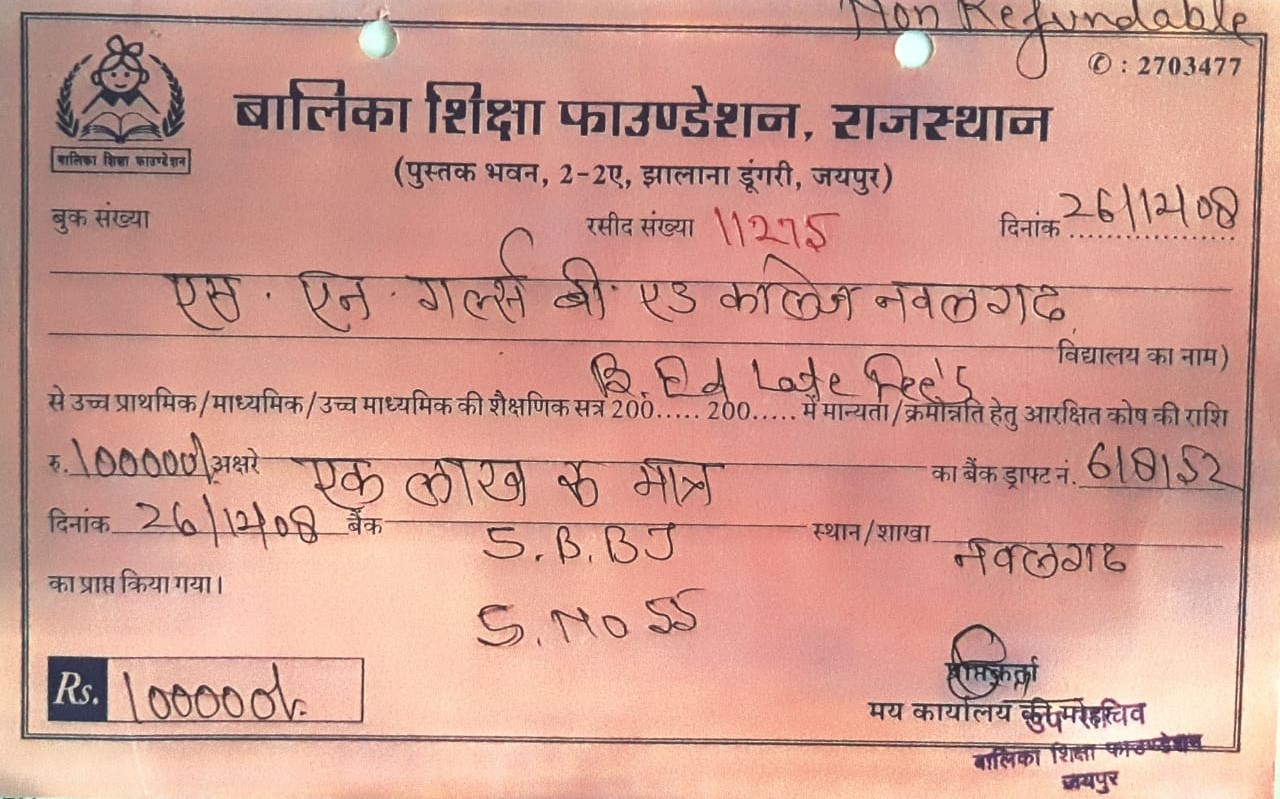 Non Refundable
✆ : 2703477
बालिका शिक्षा फाउण्डेशन
बालिका शिक्षा फाउण्डेशन, राजस्थान
(पुस्तक भवन, 2-2ए, झालाना डूंगरी, जयपुर)
बुक संख्या रसीद संख्या 11275 दिनांक 26/12/08
एस. एन. गर्ल्स बी. एड कॉलेज नवलगढ
विद्यालय का नाम)
B.Ed Late Fee's
से उच्च प्राथमिक/माध्यमिक/उच्च माध्यमिक की शैक्षणिक सत्र 200..... 200..... में मान्यता/क्रमोन्नति हेतु आरक्षित कोष की राशि
रु. 100000/ अक्षरे एक लाख रू मात्र का बैंक ड्राफ्ट नं. 618152
दिनांक 26/12/08 बैंक S.B.BJ स्थान/शाखा नवलगढ
का प्राप्त किया गया।
S.No 55
Rs. 100000/-
प्राप्तिकर्ता
मय कार्यालय की
बालिका शिक्षा फाउण्डेशन
जयपुर